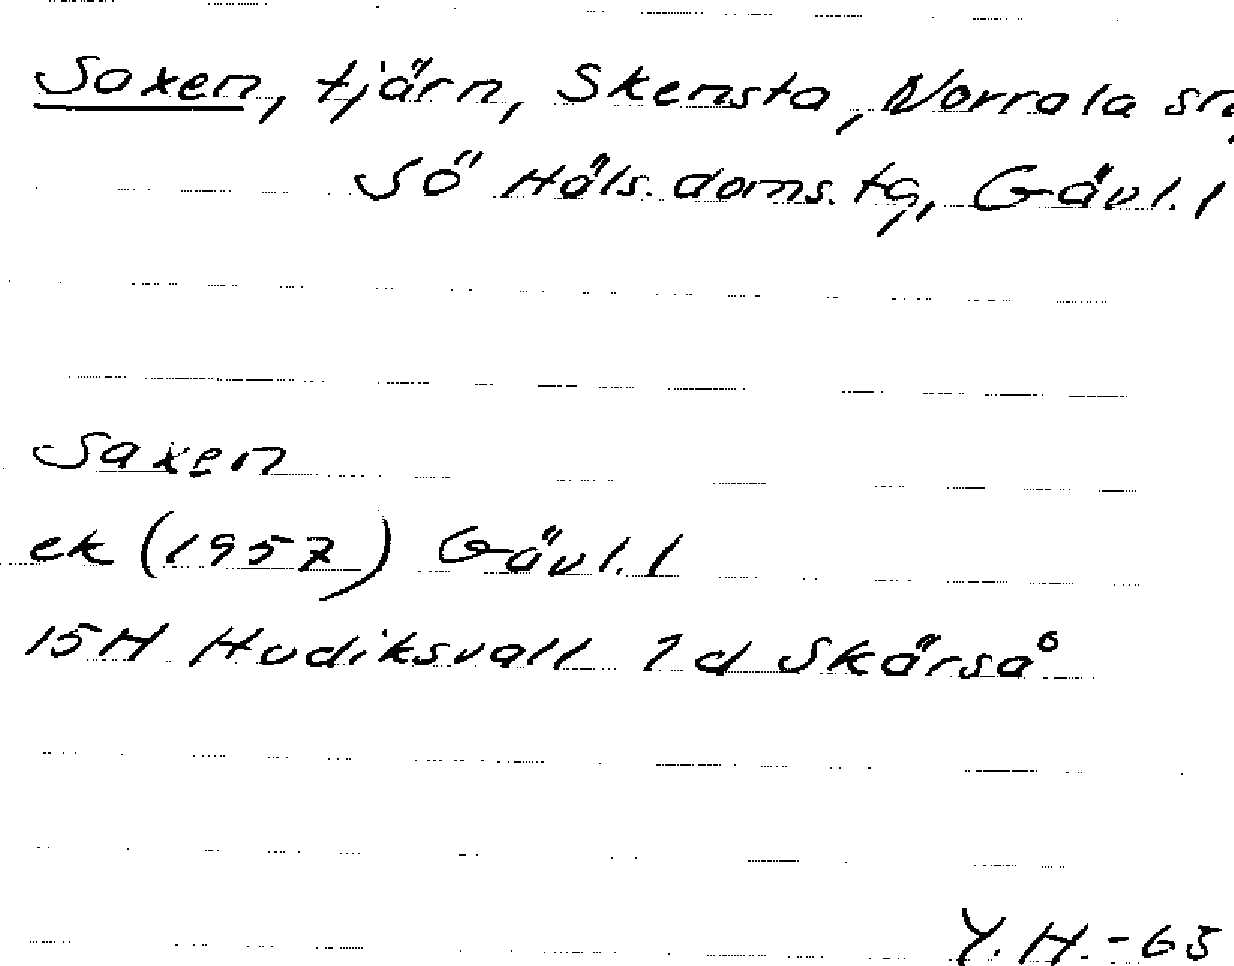 Saxen, tjärn, Skensta, Norrala sn,
Sö Häls. doms. tg, Gävl. l
Saxen
ek (1957) Gävl. l
15H Hudiksvall 2d Skärså
Y. H. - 65